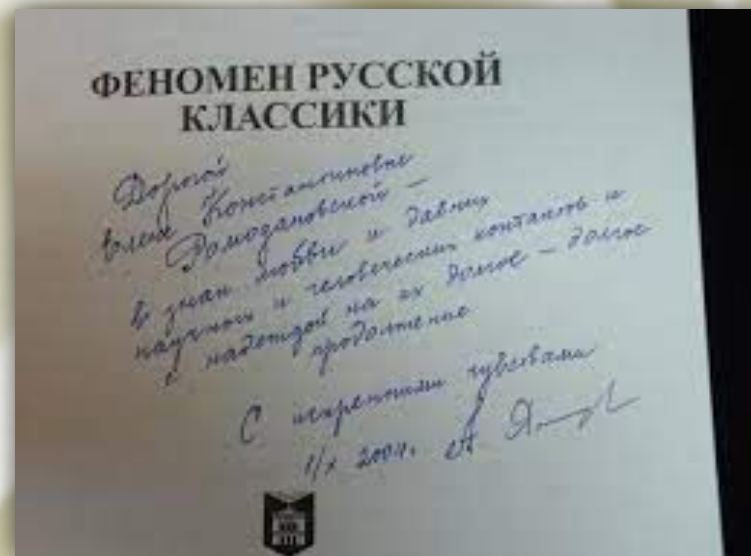 ФЕНОМЕН РУССКОЙ
КЛАССИКИ
Дорогой
Елене Константиновне
Ромодановской –
в знак любви и давних
научных и человеческих контактов и
с надеждой на их долгое – долгое
продолжение
С искренними чувствами
1/X 2004г.